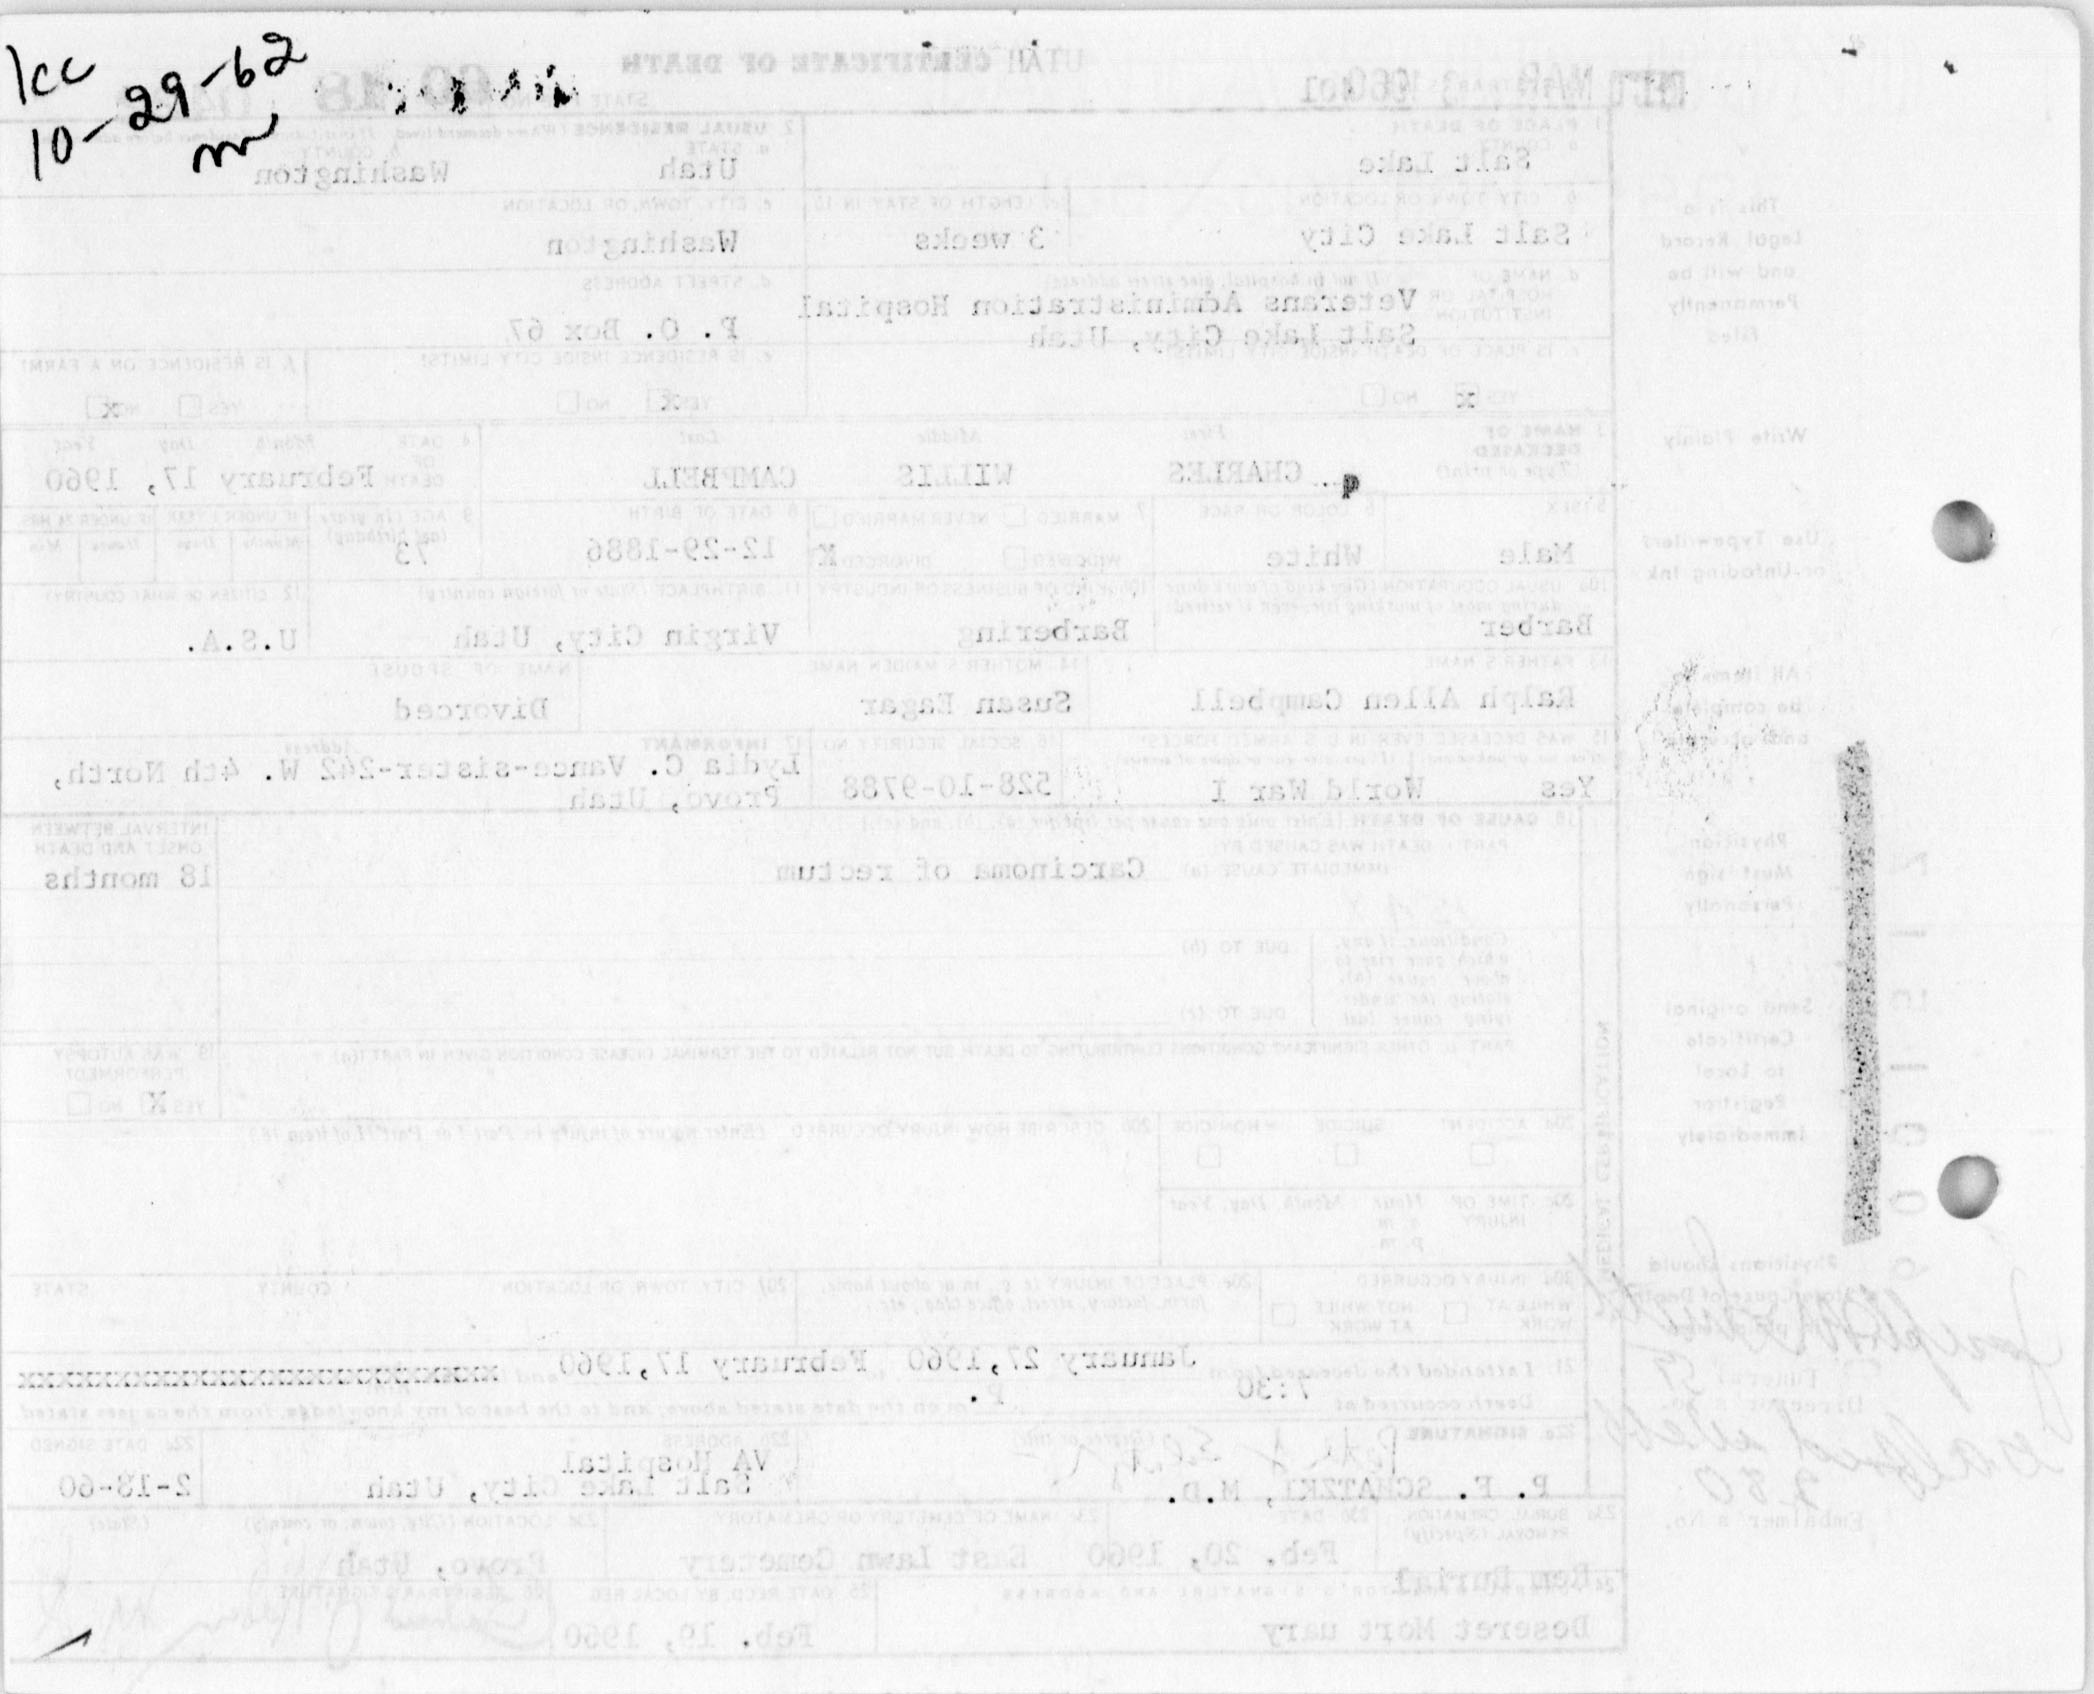 1cc
10-29-62
m
UTAH CERTIFICATE OF DEATH
1. PLACE OF DEATH
a. COUNTY
Salt Lake
2. USUAL RESIDENCE (Where deceased lived.
a. STATE
Utah
b. COUNTY
Washington
b. CITY, TOWN, OR LOCATION
Salt Lake City
c. LENGTH OF STAY IN 1b
3 weeks
c. CITY, TOWN, OR LOCATION
Washington
d. NAME OF HOSPITAL OR INSTITUTION
(If not in hospital, give street address)
Veterans Administration Hospital
Salt Lake City, Utah
d. STREET ADDRESS
P. O. Box 67
e. IS PLACE OF DEATH INSIDE CITY LIMITS?
YES X NO
e. IS RESIDENCE INSIDE CITY LIMITS?
YES X NO
f. IS RESIDENCE ON A FARM?
YES NO X
3. NAME OF DECEASED
(Type or print)
First Middle Last
CHARLES WILLIS CAMPBELL
4. DATE OF DEATH
Month Day Year
February 17, 1960
5. SEX
Male
6. COLOR OR RACE
White
7. MARRIED NEVER MARRIED
WIDOWED DIVORCED X
8. DATE OF BIRTH
12-29-1886
9. AGE (In years last birthday)
73
IF UNDER 1 YEAR
Months Days
IF UNDER 24 HRS
Hours Min
10a. USUAL OCCUPATION (Give kind of work done during most of working life, even if retired)
Barber
10b. KIND OF BUSINESS OR INDUSTRY
Barbering
11. BIRTHPLACE (State or foreign country)
Virgin City, Utah
12. CITIZEN OF WHAT COUNTRY?
U.S.A.
13. FATHER'S NAME
Ralph Allen Campbell
14. MOTHER'S MAIDEN NAME
Susan Eagar
NAME OF SPOUSE
Divorced
15. WAS DECEASED EVER IN U. S. ARMED FORCES?
Yes World War I
16. SOCIAL SECURITY NO.
528-10-9788
17. INFORMANT Address
Lydia C. Vance-sister-242 W. 4th North,
Provo, Utah
18. CAUSE OF DEATH [Enter only one cause per line for (a), (b), and (c).]
PART I. DEATH WAS CAUSED BY:
IMMEDIATE CAUSE (a)
Carcinoma of rectum
INTERVAL BETWEEN ONSET AND DEATH
18 months
Conditions, if any, which gave rise to above cause (a), stating the underlying cause last
DUE TO (b)
DUE TO (c)
PART II. OTHER SIGNIFICANT CONDITIONS CONTRIBUTING TO DEATH BUT NOT RELATED TO THE TERMINAL DISEASE CONDITION GIVEN IN PART I (a)
19. WAS AUTOPSY PERFORMED?
YES X NO
20a. ACCIDENT SUICIDE HOMICIDE
20b. DESCRIBE HOW INJURY OCCURRED. (Enter nature of injury in Part I or Part II of item 18.)
20c. TIME OF INJURY
Hour Month, Day, Year
a. m.
p. m.
20d. INJURY OCCURRED
WHILE AT WORK NOT WHILE AT WORK
20e. PLACE OF INJURY (e. g., in or about home, farm, factory, street, office bldg., etc.)
20f. CITY, TOWN, OR LOCATION COUNTY STATE
21. I attended the deceased from January 27,1960 to February 17,1960
Death occurred at 7:30 P. m on the date stated above; and to the best of my knowledge, from the causes stated.
22a. SIGNATURE (Degree or title)
P. F. SCHATZKI, M.D.
22b. ADDRESS
VA Hospital
Salt Lake City, Utah
22c. DATE SIGNED
2-18-60
23a. BURIAL, CREMATION, REMOVAL (Specify)
Rem Burial
23b. DATE
Feb. 20, 1960
23c. NAME OF CEMETERY OR CREMATORY
East Lawn Cemetery
23d. LOCATION (City, town, or county) (State)
Provo, Utah
24. FUNERAL DIRECTOR'S SIGNATURE AND ADDRESS
Deseret Mort uary
25. DATE RECD. BY LOCAL REG.
Feb. 19, 1960
26. REGISTRAR'S SIGNATURE
MEDICAL CERTIFICATION
This is a
Legal Record
and will be
Permanently
Filed
Write Plainly
Use Typewriters
or Unfading Ink
All items to
be complete
and accurate
Physician
Must sign
Personally
Send original
Certificate
to Local
Registrar
Immediately
Physicians should
State Cause of Death
Funeral
Director's No.
Embalmer's No.
280